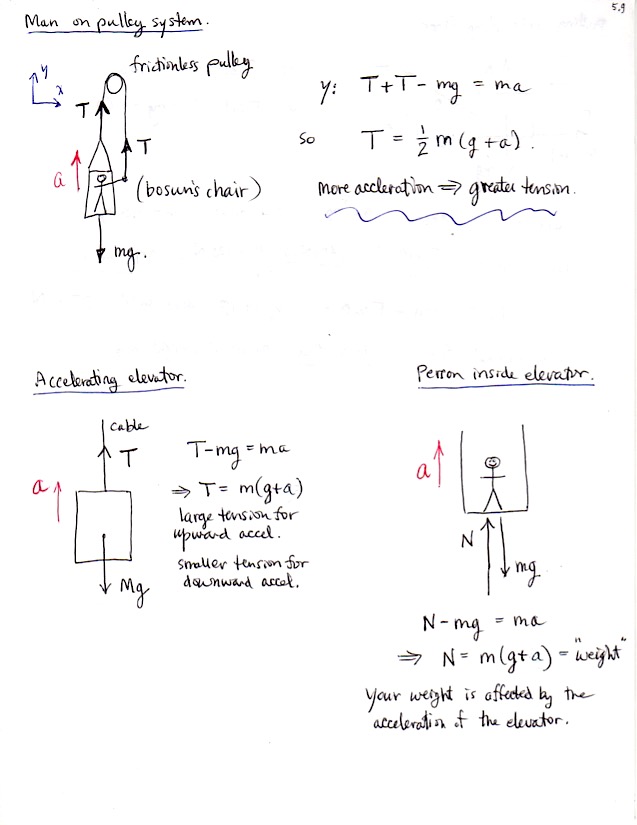 5.9
Man on pulley system.
frictionless pulley
y
x
T
T
a
(bosun's chair)
mg.
y: T+T-mg = ma
so T = ½ m(g+a).
more accleration ⇒ greater tension.
Accelerating elevator.
cable
T
a
Mg
T-mg = ma
⇒ T = m(g+a)
large tension for
upward accel.
smaller tension for
downward accel.
Person inside elevator.
a
N
mg
N-mg = ma
⇒ N = m(g+a) = "weight"
Your weight is affected by the
acceleration of the elevator.